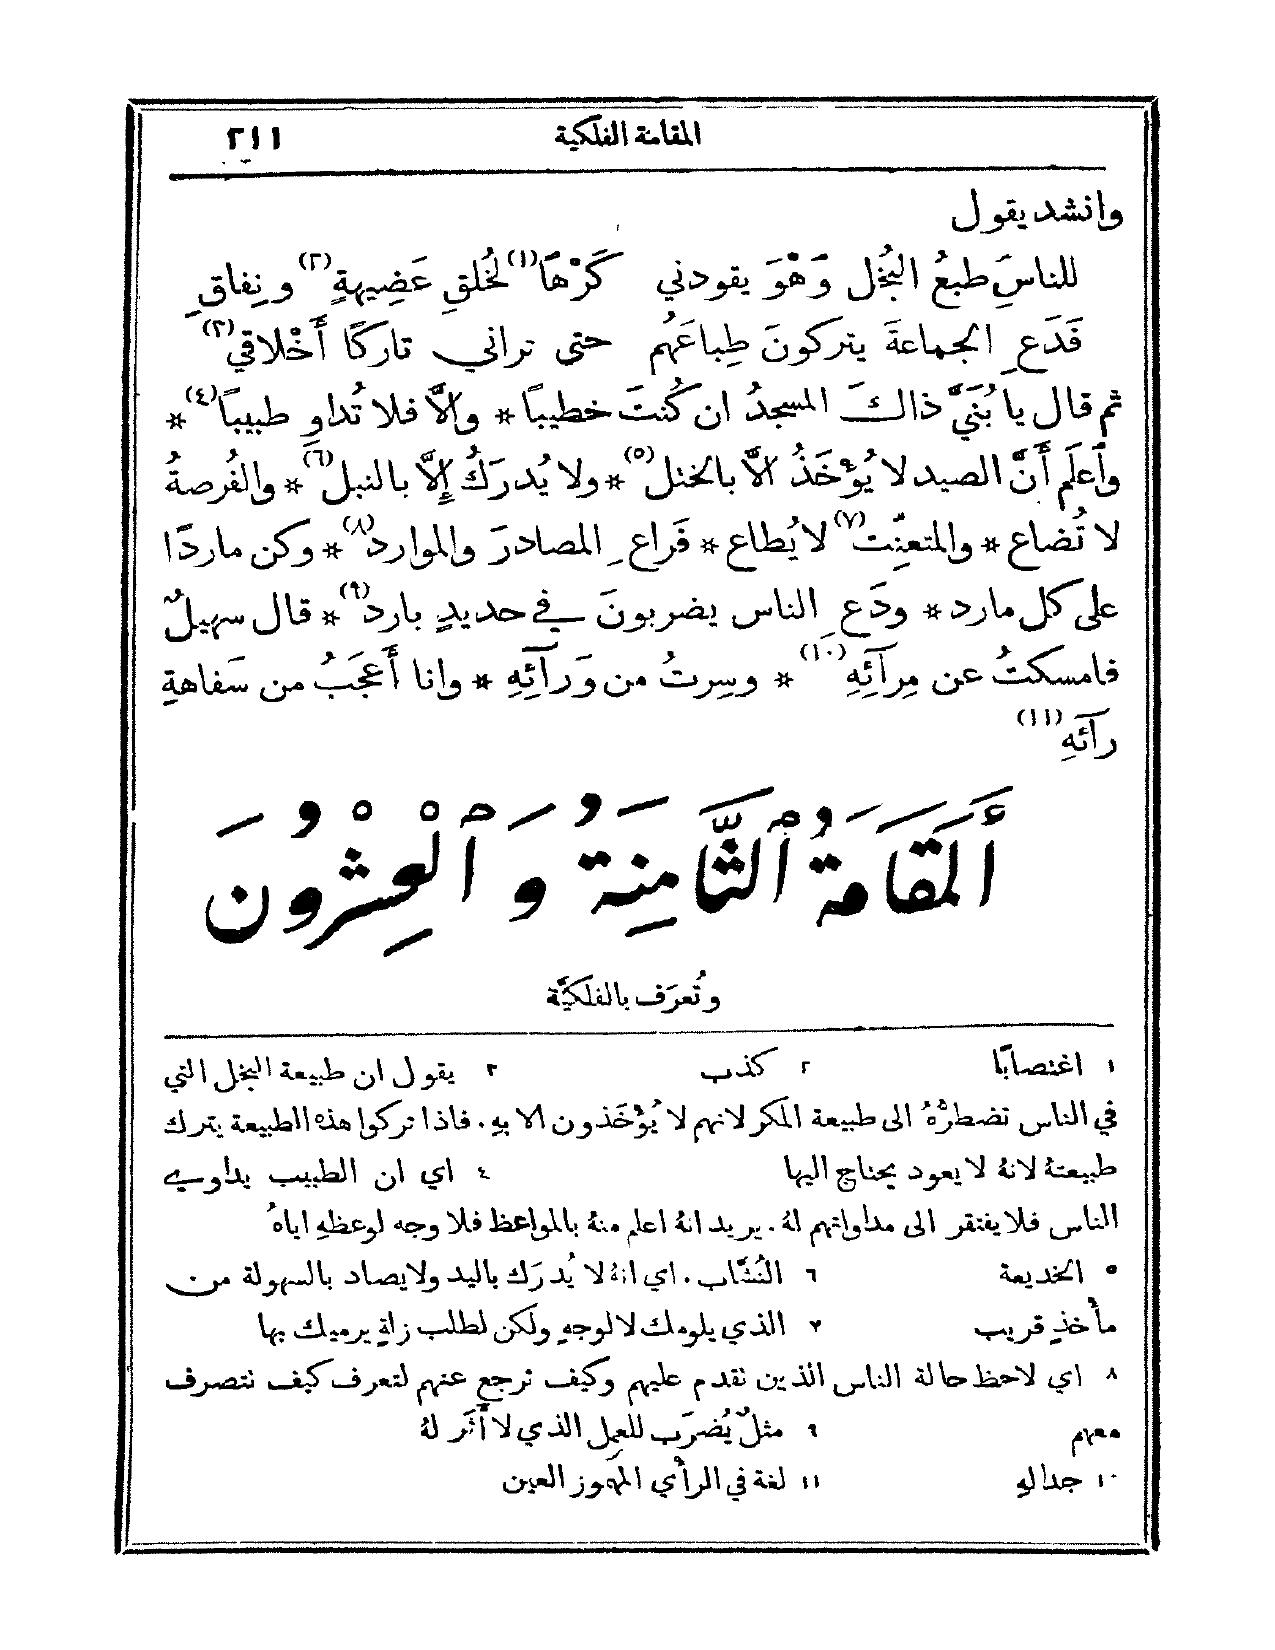 المقامة الفلكية ٢١١
وانشد يقول
للناسِ طبعُ البُخْل وَهْوَ يقودني كَرْهًا(١) لخُلقِ عَضِيهةٍ(٢) ونِفاقِ
فَدَعِ الجماعةَ يتركونَ طِباعَهُم حتى تراني تاركًا أَخْلاقي(٣)
ثم قال يا بُنَيَّ ذالكَ المسجدُ ان كُنتَ خطيبًا * والَّا فلا تُداوِ طبيبًا(٤) *
وأعلَم أَنَّ الصيد لا يُؤْخَذُ الَّا بالختل(٥) * ولا يُدرَكُ إِلَّا بالنبل(٦) * والفُرصةُ
لا تُضاع * والمتعنِّت(٧) لا يُطاع * فَراعِ المصادرَ والموارد(٨) * وكن ماردًا
على كل مارد * ودَعِ الناس يضربونَ في حديدٍ بارد(٩) * قال سهيلٌ
فامسكتُ عن مِرآئِهِ(١٠) * وسِرتُ من وَرآئِهِ * وانا أَعجَبُ من سَفاهةِ
رآئهِ(١١)
أَلمَقَامَةُ ٱلثَّامِنَةُ وَٱلْعِشْرُونَ
وتُعرَف بالفلكيَّة
١ اغتصابًا ٢ كذب ٣ يقول ان طبيعة البخل التي
في الناس تضطرُّهُ الى طبيعة المكر لانهم لا يُؤْخَذون الا بهِ. فاذا تركوا هذه الطبيعة يترك
طبيعتهُ لانهُ لا يعود يحتاج اليها ٤ اي ان الطبيب يداوي
الناس فلا يفتقر الى مداواتهم لهُ. يريد انهُ اعلم منهُ بالمواعظ فلا وجه لوعظهِ اياهُ
٥ الخديعة ٦ النُشَّاب. اي انهُ لا يُدرَك باليد ولا يصاد بالسهولة من
مأخذٍ قريب ٧ الذي يلومك لا لوجهٍ ولكن لطلب زلةٍ يرميك بها
٨ اي لاحظ حالة الناس الذين تقدم عليهم وكيف ترجع عنهم لتعرف كيف تتصرف
معهم ٩ مثلٌ يُضرَب للعمل الذي لا أَثَر لهُ
١٠ جدالهِ ١١ لغة في الرأي المهموز العين